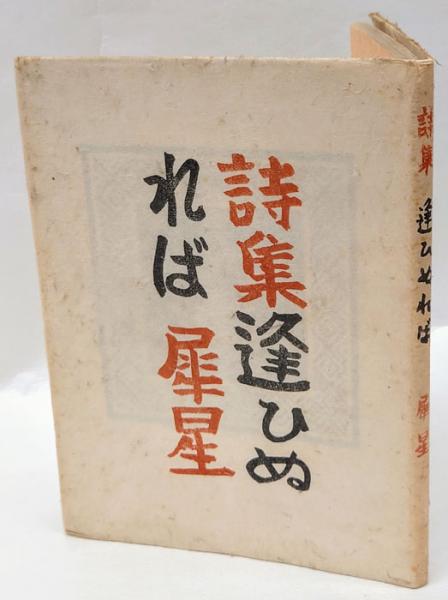 詩集逢ひぬ
れば 犀星
詩集 逢ひぬれば 犀星